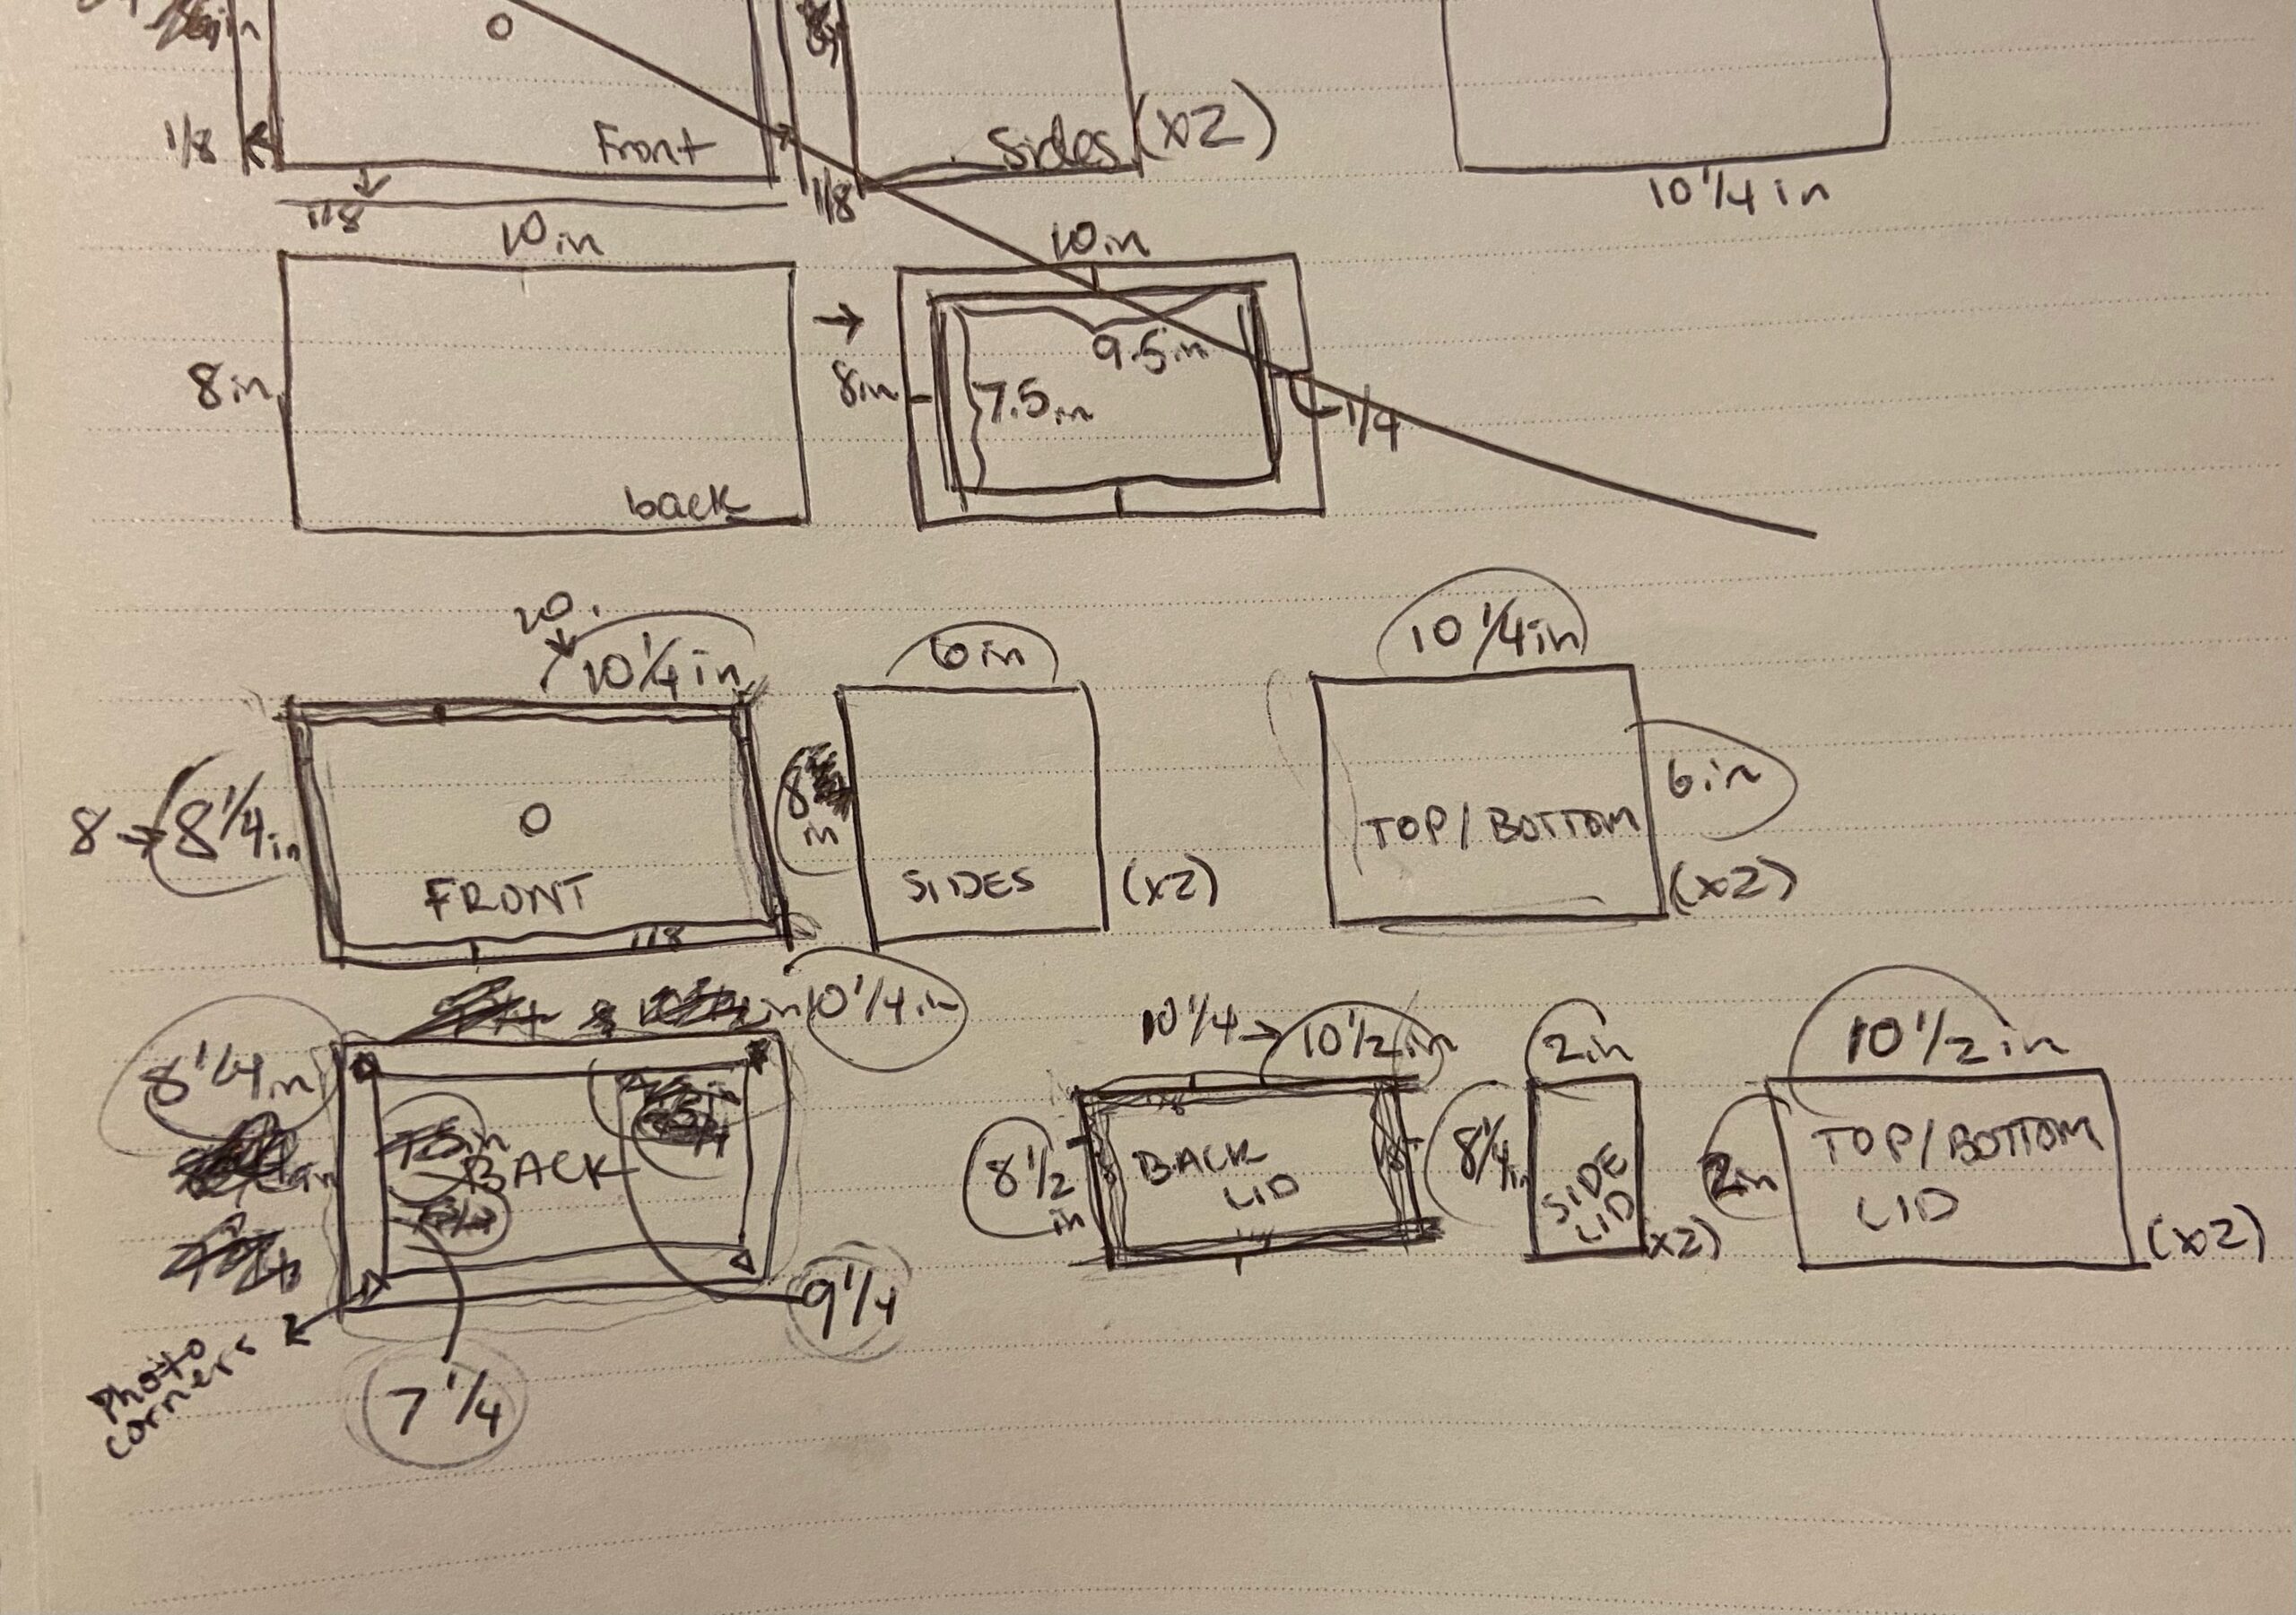 in
O
1/8
Front
Sides (x2)
1/8
1/8
10 1/4 in
10 in
10 in
8 in
back
→
8 in
9.5 in
7.5 in
1/4
10
10 1/4 in
6 in
10 1/4 in
8 → 8 1/4 in
O
FRONT
1/8
8
in
SIDES
(x2)
TOP/BOTTOM
6 in
(x2)
in 10 1/4 in
8 1/4 in
in
BACK
9 1/4
7 1/4
Photo
corners
10 1/4 → 10 1/2 in
8 1/2
in
BACK
LID
2 in
8 1/4
in
SIDE
LID
(x2)
10 1/2 in
2 in
TOP/BOTTOM
LID
(x2)